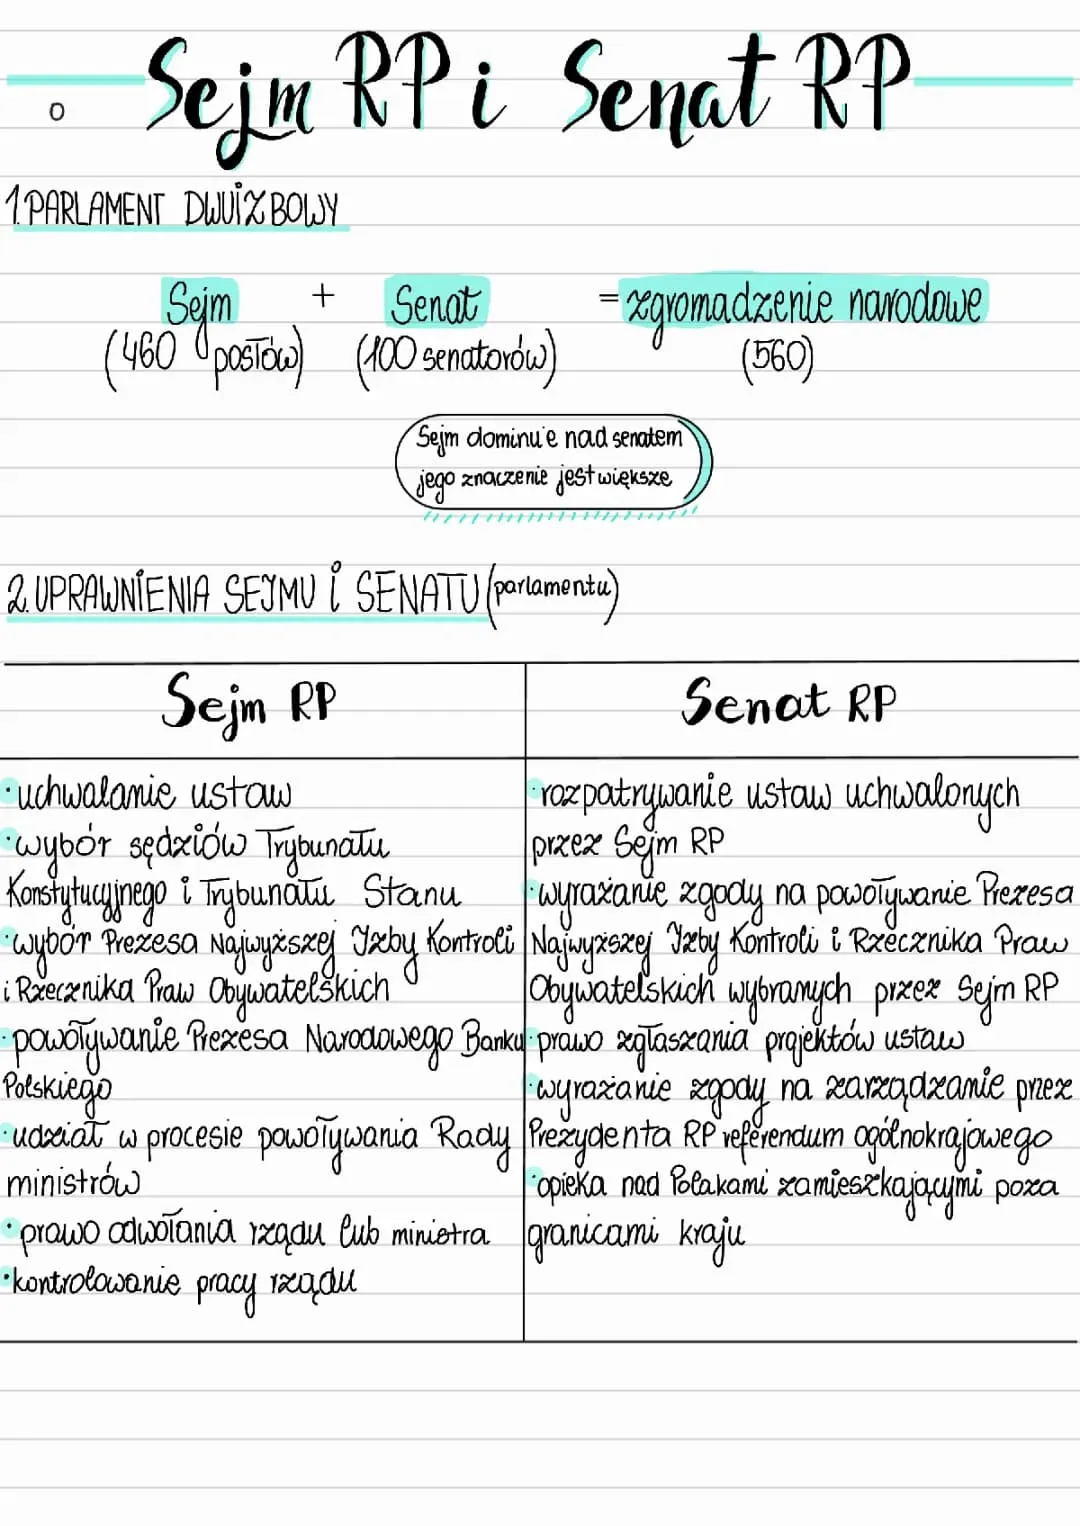 Sejm RP i Senat RP
1. PARLAMENT DWUIZBOWY
Sejm + Senat = zgromadzenie narodowe
(460 posłów) (100 senatorów) (560)
Sejm dominu'e nad senatem
jego znaczenie jest większe
2. UPRAWNIENIA SEJMU i SENATU (parlamentu)
Sejm RP
• uchwalanie ustaw
• wybór sędziów Trybunału
Konstytucyjnego i Trybunału Stanu
• wybór Prezesa Najwyższej Izby Kontroli
i Rzecznika Praw Obywatelskich
• powoływanie Prezesa Narodowego Banku
Polskiego
• udział w procesie powoływania Rady
ministrów
• prawo odwołania rządu lub ministra
• kontrolowanie pracy rządu
Senat RP
• rozpatrywanie ustaw uchwalonych
przez Sejm RP
• wyrażanie zgody na powoływanie Prezesa
Najwyższej Izby Kontroli i Rzecznika Praw
Obywatelskich wybranych przez Sejm RP
• prawo zgłaszania projektów ustaw
• wyrażanie zgody na zarządzanie przez
Prezydenta RP referendum ogólnokrajowego
• opieka nad Polakami zamieszkającymi poza
granicami kraju